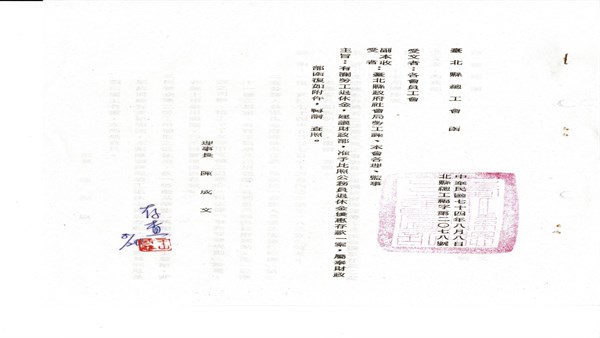 臺北縣總工會 函
受文者：各會員工會
副本收受者：臺北縣政府社會局勞工課、本會各理、監事
中華民國七十四年八月八日
北縣總工福字第二〇七八號
主旨：有關勞工退休金，建議財政部，准予比照公務員退休金優惠存款一案，屬奉財政
部函復如附件，轉請 查照。
理事長 陳成文
存查